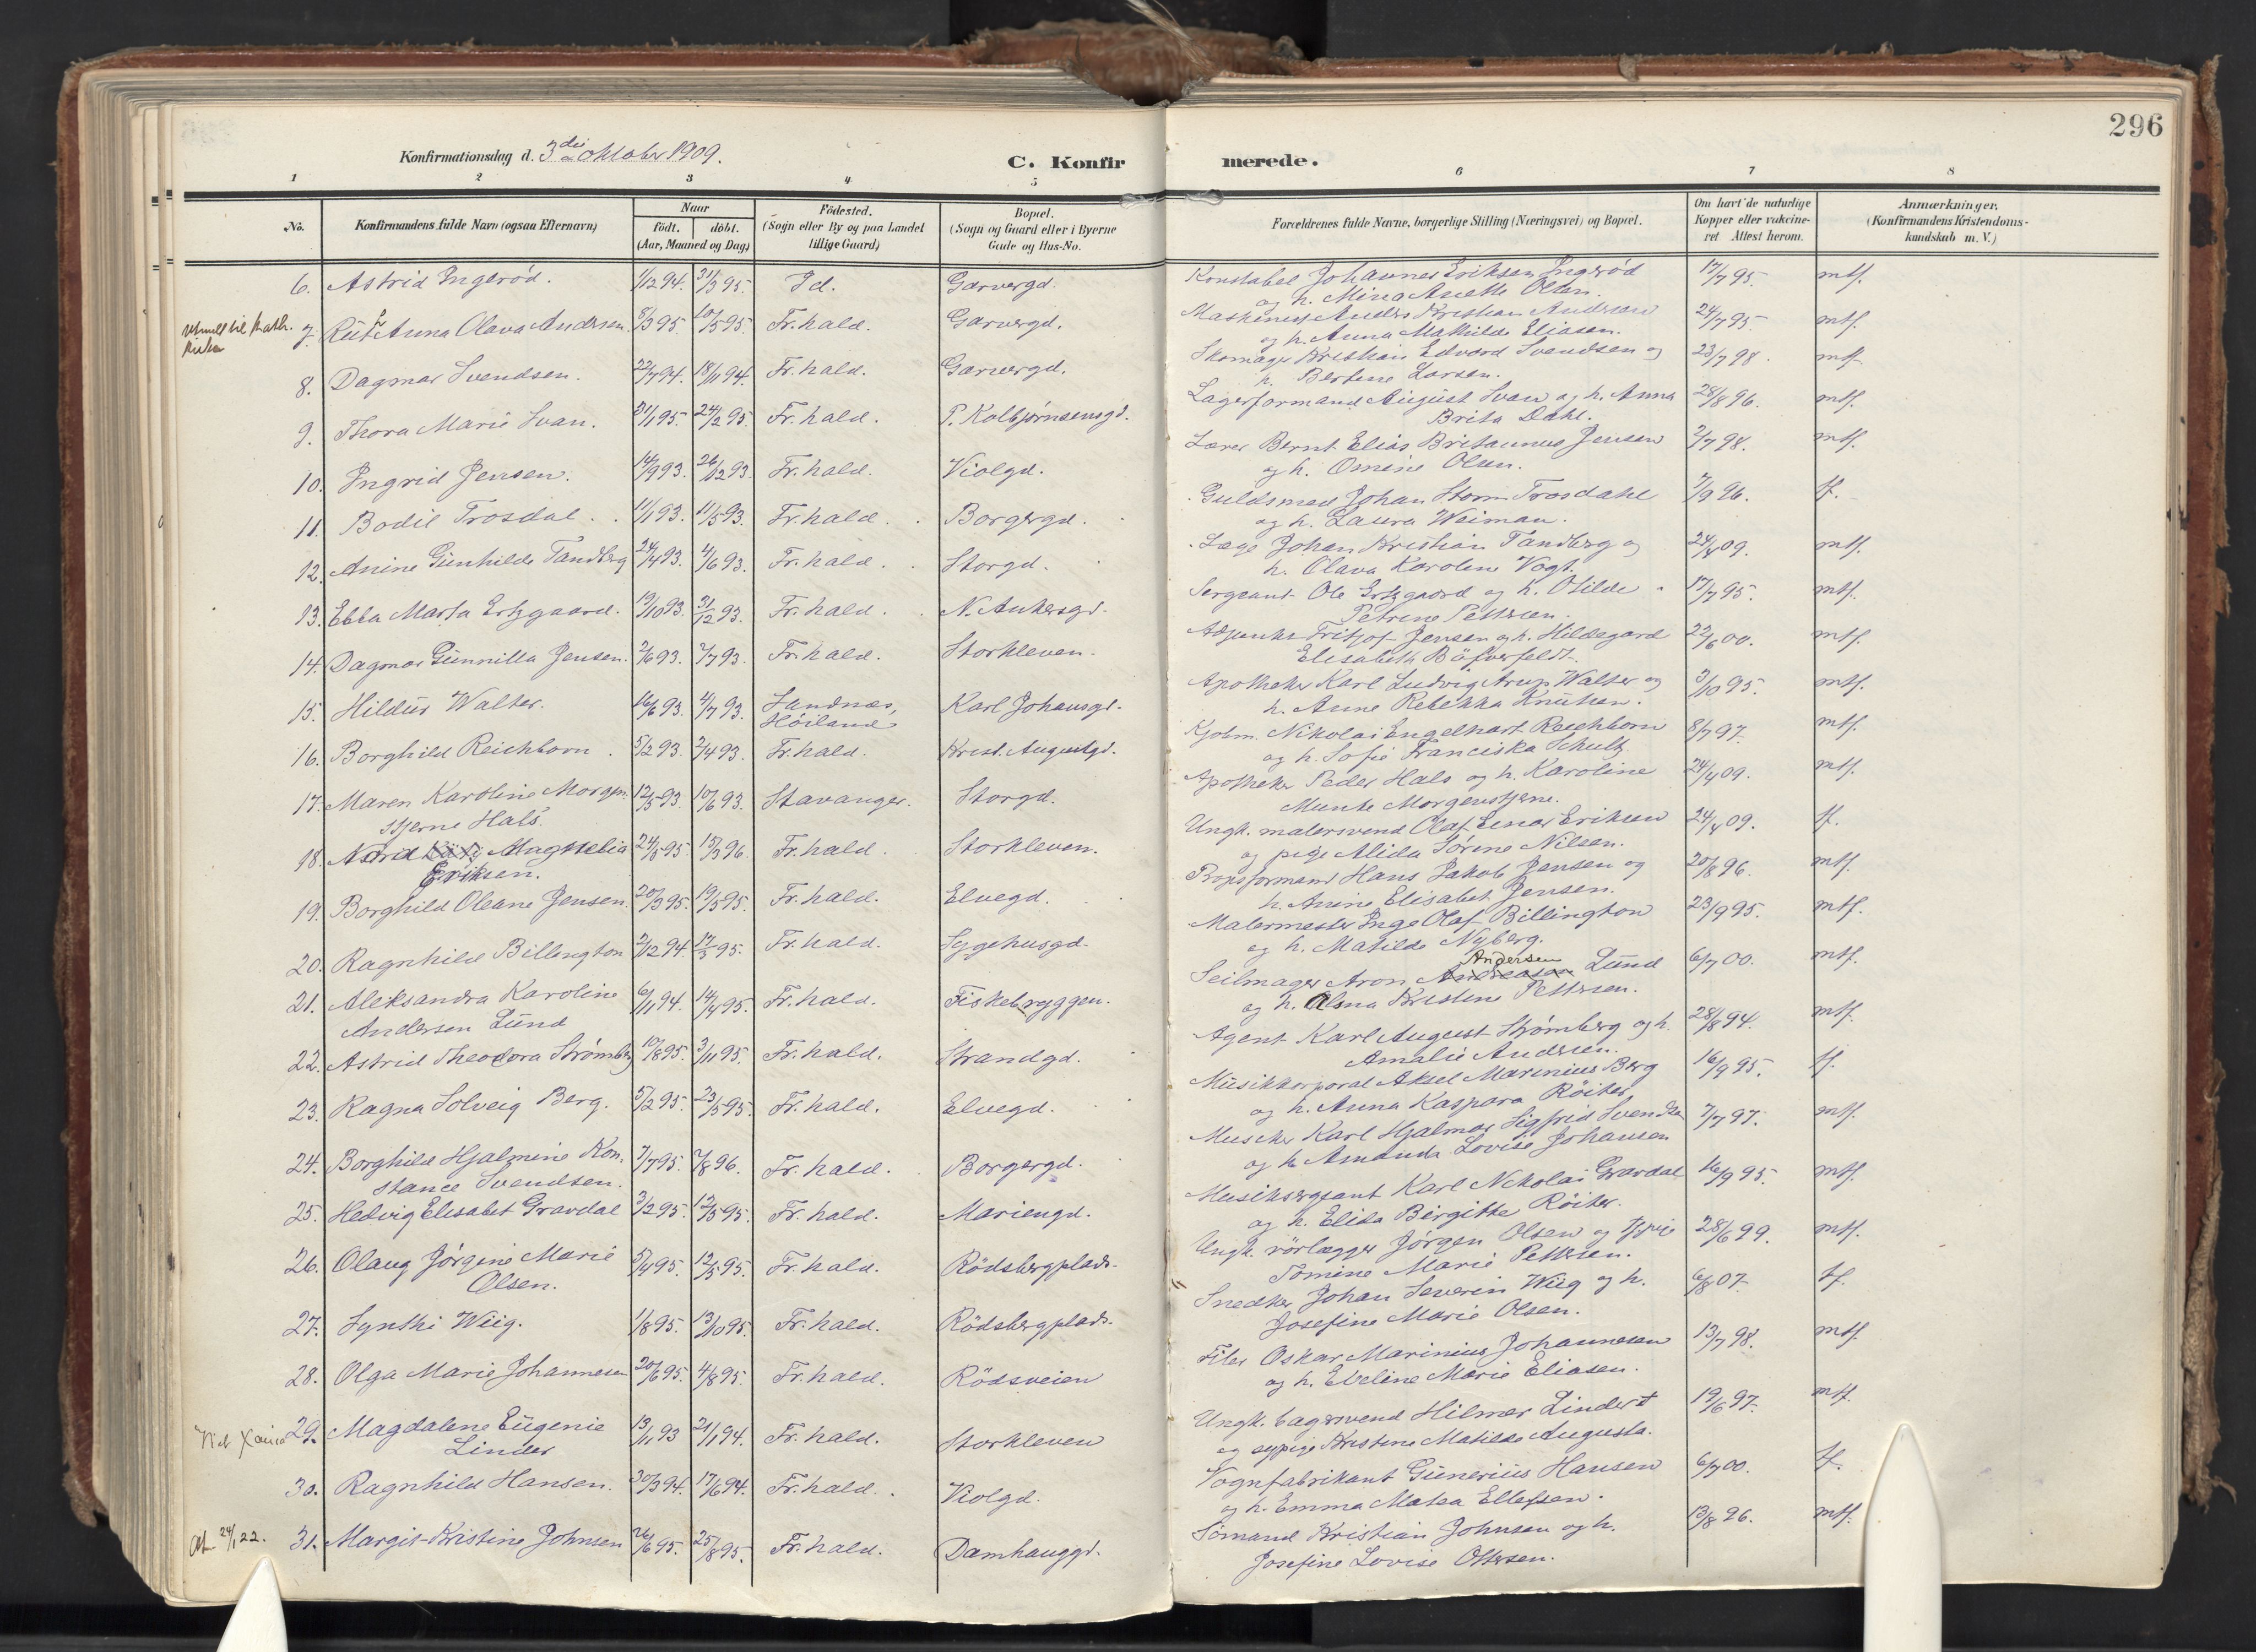 296
Konfirmationsdag d. 3die oktober 1909.
C. Konfirmerede.
1 2 3 4 5 6 7 8
No. Konfirmandens fulde Navn (ogsaa Efternavn) Naar født. døbt. (Aar, Maaned og Dag) Fødested. (Sogn eller By og paa Landet tillige Gaard) Bopæl. (Sogn og Gaard eller i Byerne Gade og Hus-No. Forældrenes fulde Navne, borgerlige Stilling (Næringsvei) og Bopæl. Om havt de naturlige Kopper eller vakcineret Attest herom. Anmærkninger, (Konfirmandens Kristendomskundskab m. V.)
6. Astrid Ingerød. 1/12 94. 31/3 95. Id. Garvergd. Konstabel Johannes Eriksen Ingerød 17/7 95. mtf.
og h. Mina Anette Olsen.
7. Rut Anna Olava Andersen. 8/3 95 10/5 95. Fr.hald. Garvergd. Maskinist Anders Kristian Andersen 24/7 95. mtf.
og h. Anna Mathilde Eliasen.
8. Dagmar Svendsen. 22/7 94. 18/11 94. Fr.hald. Garvergd. Skomager Kristian Edvard Svendsen og 23/7 98. mtf.
h. Bertine Larsen.
9. Thora Marie Svan. 31/1 95. 24/2 95. Fr.hald. P. Kolbjørnsensgd. Lagerformand August Svan og h. Anna 28/8 96. mtf.
Brita Dahl.
10. Ingrid Jensen. 14/9 93. 26/12 93. Fr.hald. Violgd. Lærer Bernt Elias Britannus Jensen 2/7 98. mtf.
og h. Omine Olsen.
11. Bodil Trosdal. 11/1 93. 11/5 93. Fr.hald. Borgergd. Guldsmed Johan Storm Trosdahl 7/9 96. tf.
og h. Laura Weiman.
12. Anine Gunhilde Tandberg 24/4 93. 4/6 93. Fr.hald. Storgd. Læge Johan Kristian Tandberg og 24/4 09. mtf.
h. Olava Karoline Vogt.
13. Ebba Marta Ertzgaard. 19/10 93 31/12 93. Fr.hald. N. Ankersgd. Sergeant Ole Ertzgaard og h. Otilde 17/7 95. mtf.
Petrine Pettersen.
14. Dagmar Gunnilla Jensen. 2/6 93. 7/7 93. Fr.hald. Storkleven. Adjunkt Fritjof Jensen og h. Hildegard 22/6 00. mtf.
Elisabeth Bäfverfeldt.
15. Hildur Walter. 16/6 93. 4/7 93. Sandnæs, Høiland Karl Johansgd. Apotheker Karl Ludvig Arup Walter og 3/10 95. mtf.
h. Anne Rebekka Knutsen.
16. Borghild Reichborn. 5/2 93. 2/4 93. Fr.hald. Krist. Augustgd. Kjøbm. Nikolai Engelhart Reichborn 8/7 97. mtf.
og h. Sofie Franciska Schultz
17. Maren Karoline Morgen- 12/5 93. 10/6 93. Stavanger. Storgd. Apotheker Peder Hals og h. Karoline 24/4 09. mtf.
stjerne Hals. Munte Morgenstjerne.
18. Astrid Magnelia 24/5 95 15/3 96. Fr.hald. Storkleven. Ungk. malersvend Olaf Einar Eriksen 24/4 09. tf.
Eriksen. og pige Alida Sørine Nilsen.
19. Borghild Oleane Jensen. 20/3 95. 19/5 95. Fr.hald. Elvegd. Propsformand Hans Jakob Jensen og 20/8 96. mtf.
h. Anine Elisabet Jensen.
20. Ragnhild Billington 2/12 94. 17/3 95. Fr.hald. Sygehusgd. Malermester Inge Olaf Billington 23/9 95. mtf.
og h. Matilde Nyberg.
21. Aleksandra Karoline 6/11 94. 14/4 95. Fr.hald. Fiskebryggen. Seilmager Aron Andreasen Andersen Lund 6/7 00. mtf.
Andersen Lund og h. Alma Kristine Pettersen.
22. Astrid Theodora Strømberg 10/8 95. 3/11 95. Fr.hald. Strandgd. Agent Karl August Strømberg og h. 28/8 94. mtf.
Amalie Andersen.
23. Ragna Solveig Berg. 5/2 95. 23/5 95. Fr.hald. Elvegd. Musikkorporal Aksel Marinius Berg 16/9 95. tf.
og h. Anna Kaspara Røiter
24. Borghild Hjalmine Kon- 7/7 95. 2/8 96. Fr.hald. Borgergd. Musiker Karl Hjalmar Sigfrid Svendsen 7/7 97. mtf.
stance Svendsen. og h. Amanda Lovise Johansen
25. Hedvig Elisabet Gravdal 3/2 95. 12/5 95. Fr.hald. Mariengd. Musiksergeant Karl Nikolai Gravdal 16/9 95. mtf.
og h. Elida Birgitte Røiter.
26. Olaug Jørgine Marie 5/4 95. 12/5 95. Fr.hald. Rødsbergplads. Ungk. rörlægger Jørgen Olsen og pige 28/6 99. mtf.
Olsen. Tomine Marie Pettersen.
27. Synthi Wiig. 1/8 95. 13/10 95. Fr.hald. Rødsbergplads. Snedker Johan Severin Wiig og h. 6/8 07. tf.
Josefine Marie Olsen.
28. Olga Marie Johannesen 20/6 95. 4/8 95. Fr.hald. Rødsveien Filer Oskar Marinius Johannesen 13/7 98. mtf.
og h. Eveline Marie Eliasen.
29. Magdalene Eugenie 13/11 93 21/1 94. Fr.hald. Storkleven Ungk. bagersvend Hilmar Lindert 19/6 97. mtf.
Linder og sypige Kristine Matilde Augusta.
30. Ragnhild Hansen. 30/3 94. 17/6 94. Fr.hald. Violgd. Vognfabrikant Gunerius Hansen 6/7 00. tf.
og h. Emma Matea Ellefsen.
24/1 22. 31. Margit Kristine Johnsen 26/6 95. 25/8 95. Fr.hald. Damhauggd. Sømand Kristian Johnsen og h. 13/8 96. mtf.
Josefine Lovise Ottersen.